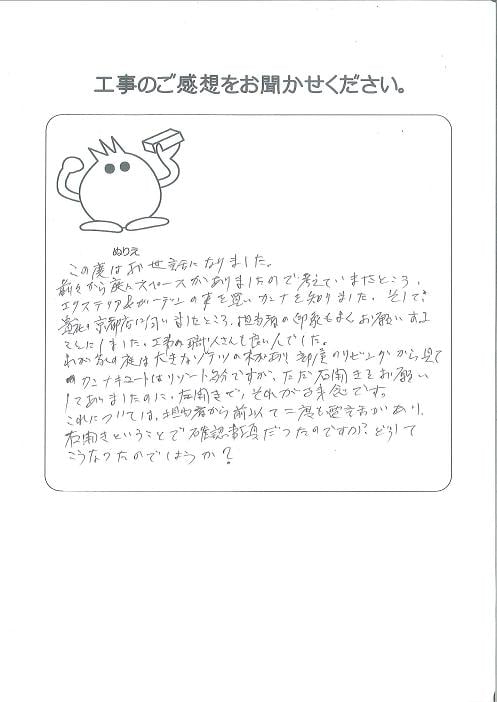 工事のご感想をお聞かせください。
ぬりえ
この度はお世話になりました。
前々から庭にスペースがありましたので考えていましたところ、
エクステリア&ガーデンの本を買いカンナを知りました。そして
京都店に伺いましたところ、担当者の印象もよくお願いする
ことにしました。工事の職人さんも良い人でした。
わが家の庭は大きなソテツの木があり部屋のリビングから見て
カンナキュートはリゾート気分ですが、ただ右開きをお願い
してありましたのに、左開きで、それが残念です。
これについては、担当者から前以て二度も電話があり、
右開きということで確認済だったのですが?どうして
こうなったのでしょうか?